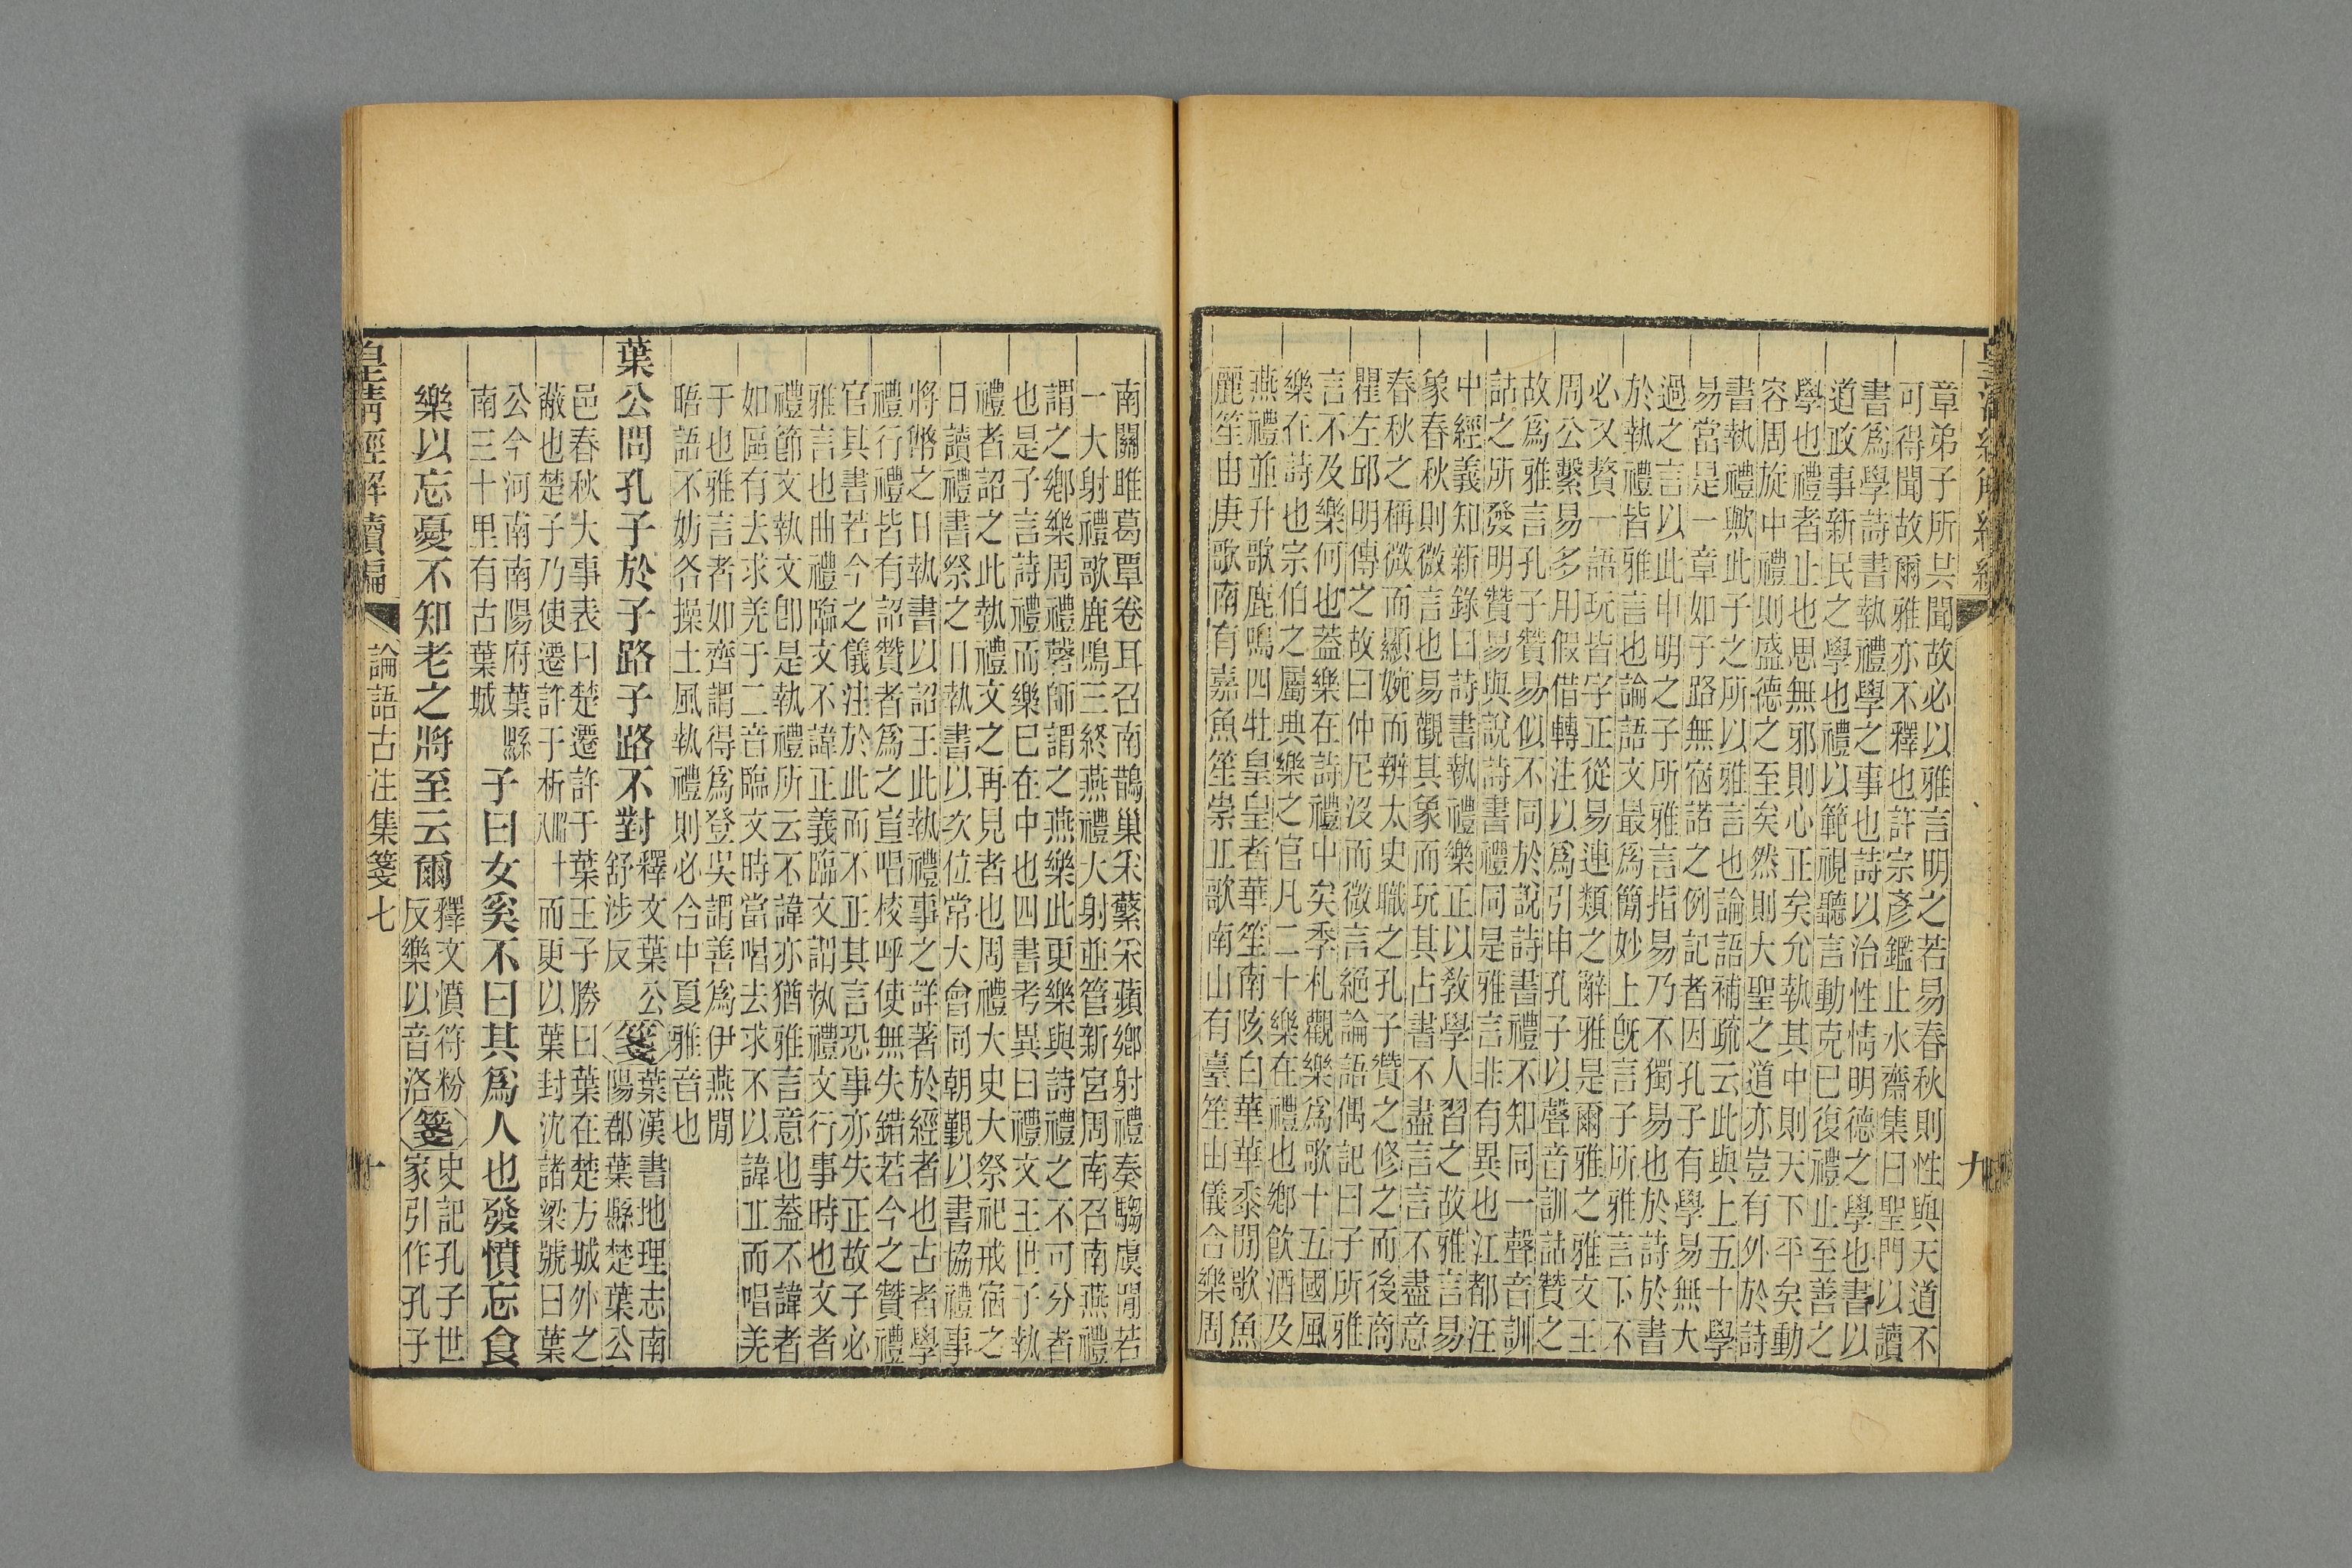 章弟子所共聞故必以雅言明之若易春秋則性與天道不
可得聞故爾雅亦不釋也許宗彥鑑止水齋集曰聖門以讀
書爲學詩書執禮學之事也詩以治性情明德之學也書以
道政事新民之學也禮以範視聽言動克已復禮止至善之
學也禮者止也思無邪則心正矣允執其中則天下平矣動
容周旋中禮則盛德之至矣然則大聖之道亦豈有外於詩
書執禮歟此子之所以雅言也論語補疏云此與上五十學
易當是一章如子路無宿諾之例記者因孔子有學易無大
過之言以此申明之子所雅言指易乃不獨易也於詩於書
於執禮皆雅言也論語文最爲簡妙上旣言子所雅言下不
必又贅一語玩皆字正從易連類之辭雅是爾雅之雅文王
周公繫易多用假借轉注以爲引申孔子以聲音訓詁贊之
故爲雅言孔子贊易似不同於說詩書禮不知同一聲音訓
詁之所發明贊易與說詩書禮同是雅言非有異也江都汪
中經義知新錄曰詩書執禮樂正以敎學人習之故雅言易
象春秋則微言也易觀其象而玩其占書不盡言言不盡意
春秋之稱微而顯婉而辨太史職之孔子贊之修之而後商
瞿左邱明傳之故曰仲尼沒而微言絕論語偶記曰子所雅
言不及樂何也蓋樂在詩禮中矣季札觀樂爲歌十五國風
樂在詩也宗伯之屬典樂之官凡二十樂在禮也鄕飮酒及
燕禮並升歌鹿鳴四牡皇皇者華笙南陔白華華黍閒歌魚
麗笙由庚歌南有嘉魚笙崇丘歌南山有臺笙由儀合樂周
九
南關雎葛覃卷耳召南鵲巢采蘩采蘋鄕射禮奏騶虞閒若
一大射禮歌鹿鳴三終燕禮大射並管新宮周南召南燕禮
謂之鄕樂周禮磬師謂之燕樂此更樂與詩禮之不可分者
也是子言詩禮而樂已在中也四書考異曰禮文王世子執
禮者詔之此執禮文之再見者也周禮大史大祭祀戒宿之
日讀禮書祭之日執書以次位常大會同朝覲以書協禮事
將幣之日執書以詔王此執禮事之詳著於經者也古者學
禮行禮皆有詔贊者爲之宣唱校呼使無失錯若今之贊禮
官其書若今之儀注於此而不正其言恐事亦失正故子必
雅言也曲禮臨文不諱正義臨文謂執禮文行事時也文者
禮節文執文卽是執禮所云不諱亦猶雅言意也蓋不諱者
如區有去求羌于二音臨文時當唱去求不以諱丘而唱羌
于也雅言者如齊謂得爲登吳謂善爲伊燕閒
晤語不妨各操土風執禮則必合中夏雅音也
葉公問孔子於子路子路不對
釋文葉公
舒涉反
箋
葉漢書地理志南
陽郡葉縣楚葉公
邑春秋大事表曰楚遷許于葉王子勝曰葉在楚方城外之
蔽也楚子乃使遷許于析昭十八而更以葉封沈諸梁號曰葉
公今河南南陽府葉縣
南三十里有古葉城
子曰女奚不曰其爲人也發憤忘食
樂以忘憂不知老之將至云爾
釋文憤符粉
反樂以音洛
箋
史記孔子世
家引作孔子
皇淸經解續編
論語古注集箋七
十